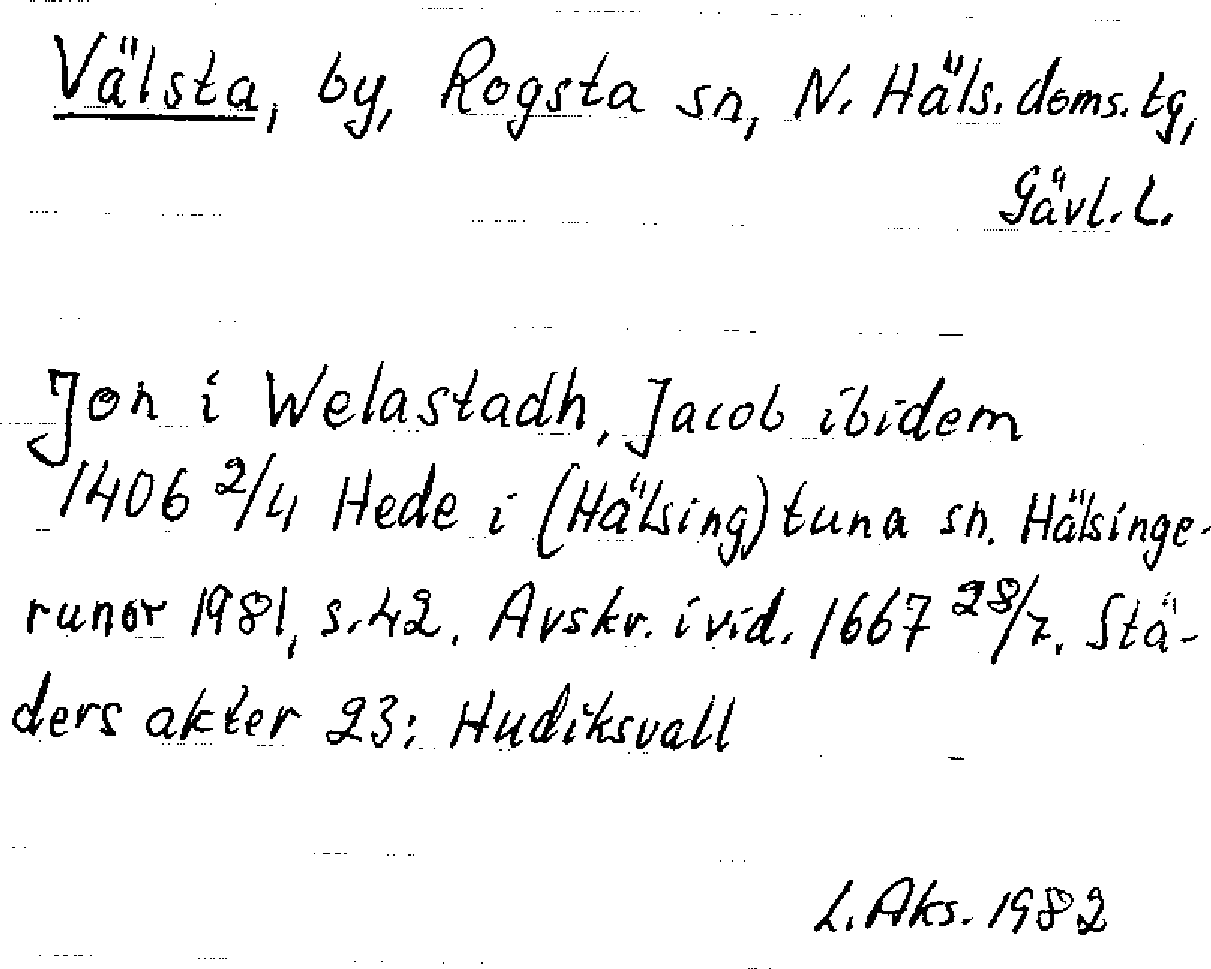 Välsta, by, Rogsta sn, N. Häls. doms. tg,
Gävl. L.
Jon i Welastadh, Jacob ibidem
1406 2/4 Hede i (Hälsing)tuna sn. Hälsinge-
runor 1981, s. 42. Avskr. i vid. 1667 28/7. Stä-
ders akter 23: Hudiksvall
L. Aks. 1982